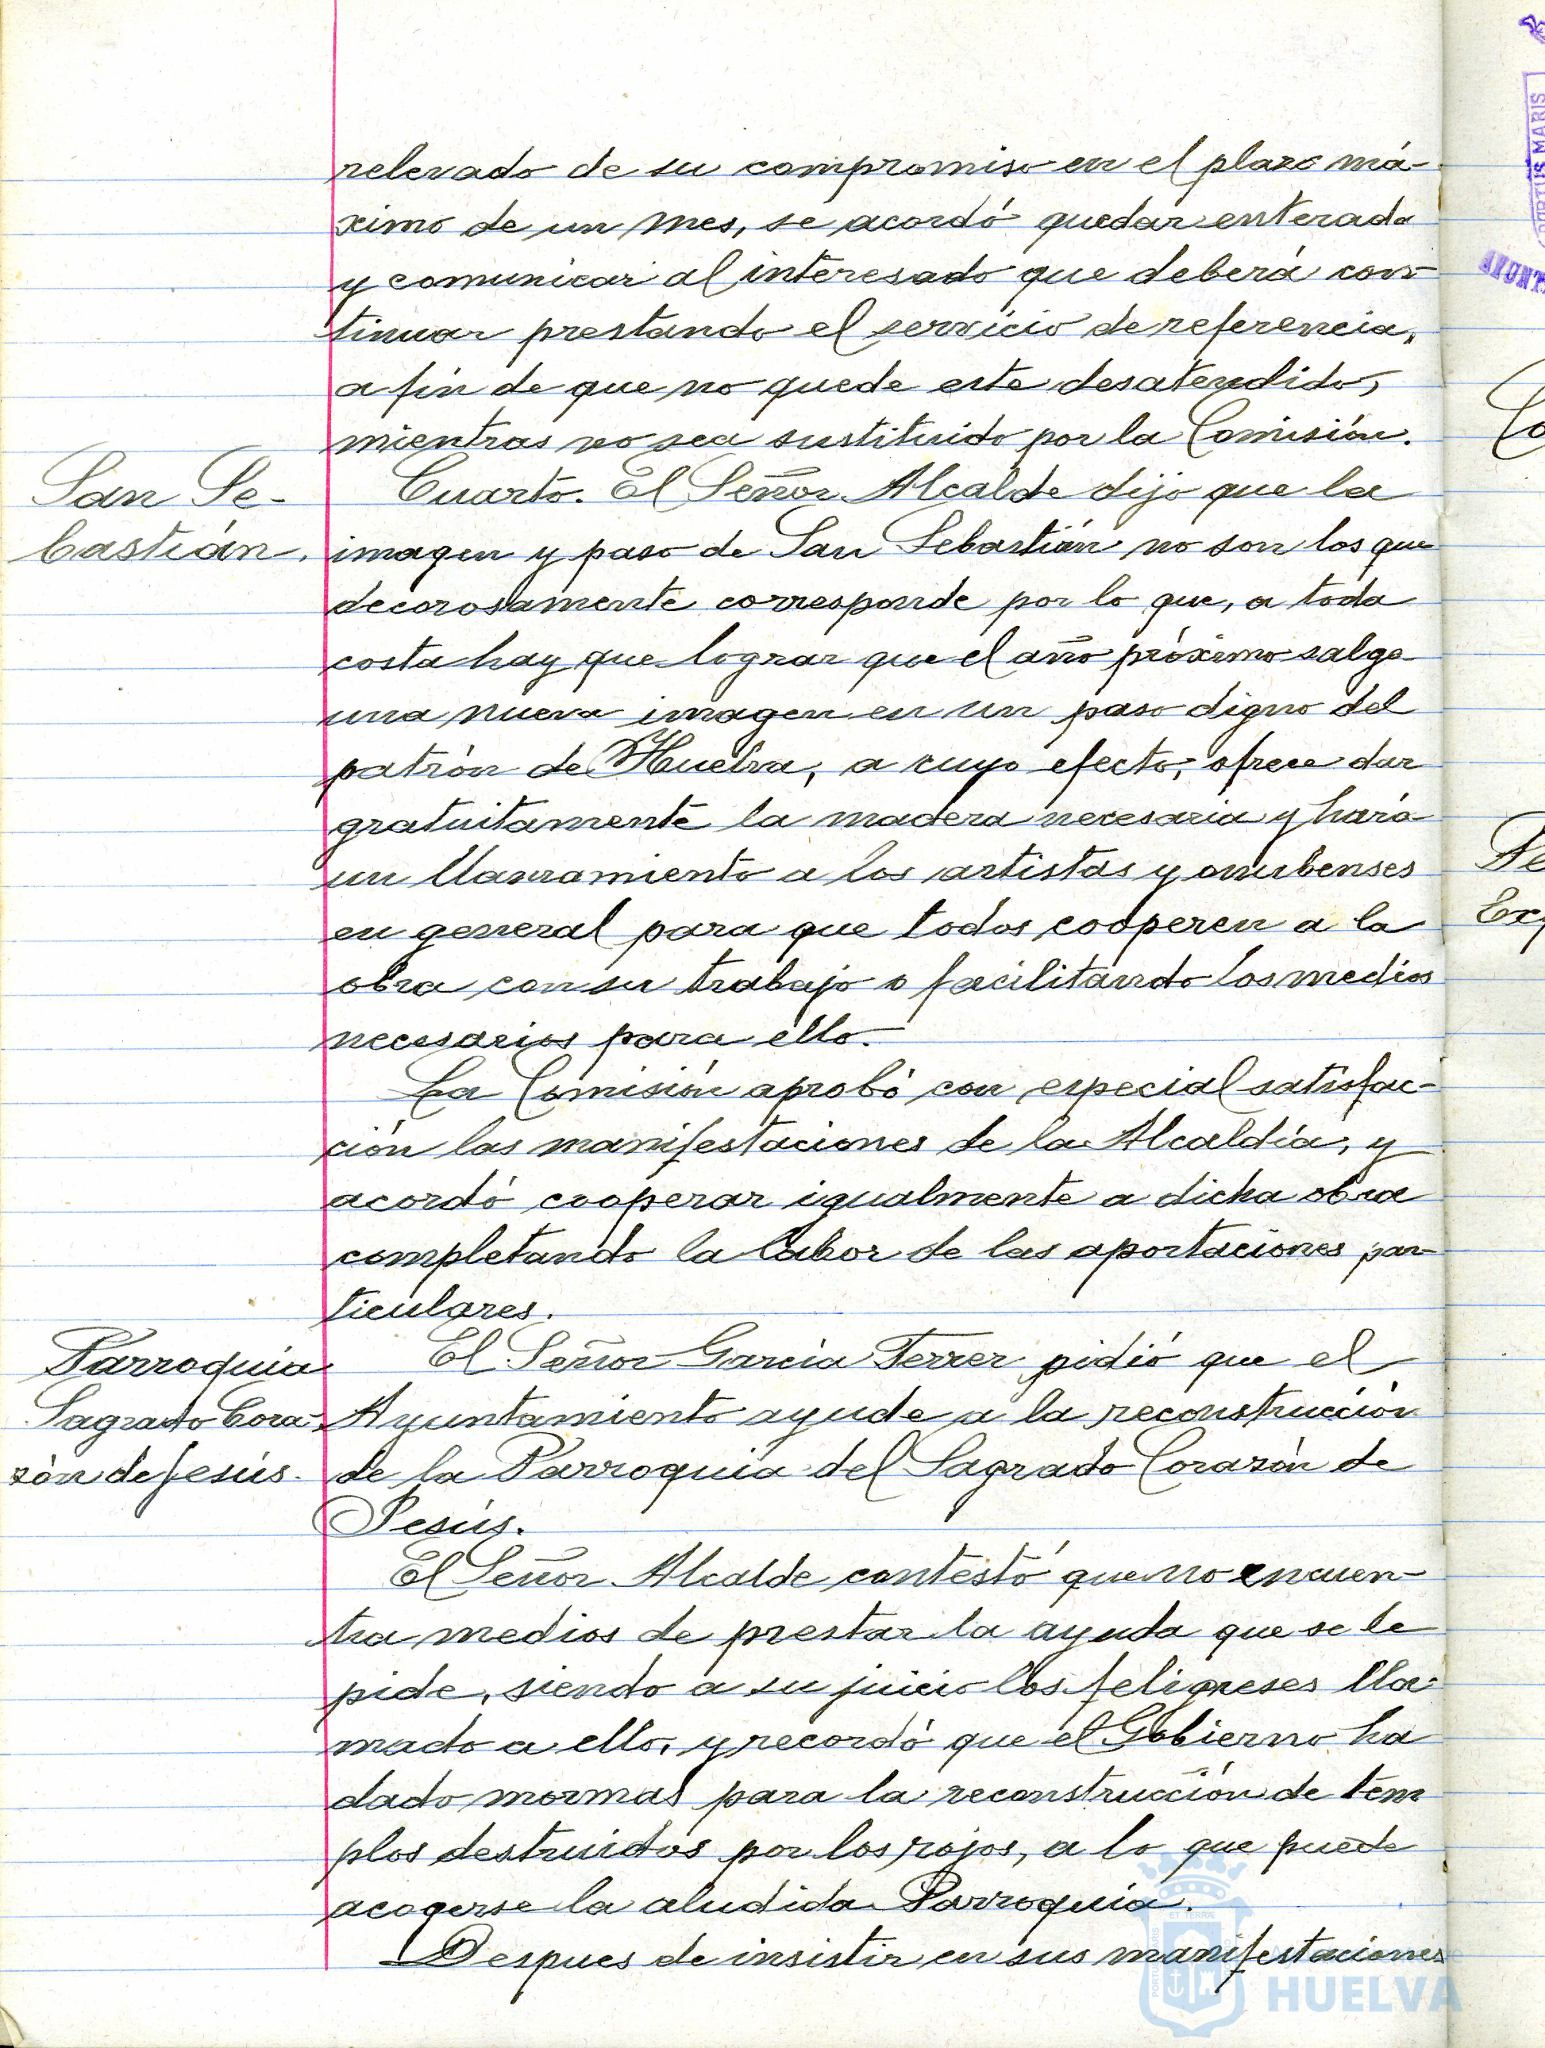 relevado de su compromiso en el plazo má-
ximo de un mes, se acordó quedar enterada
y comunicar al interesado que deberá con-
tinuar prestando el servicio de referencia,
a fin de que no quede este desatendido,
mientras no sea sustituido por la Comisión.
San Se-
bastián.
Cuarto. El Señor Alcalde dijo que la
imagen y paso de San Sebastián no son los que
decorosamente corresponde por lo que, a toda
costa hay que lograr que el año próximo salga
una nueva imagen en un paso digno del
patrón de Huelva, a cuyo efecto, ofrece dar
gratuitamente la madera necesaria y hará
un llamamiento a los artistas y onubenses
en general para que todos cooperen a la
obra con su trabajo o facilitando los medios
necesarios para ello.
La Comisión aprobó con especial satisfac-
ción las manifestaciones de la Alcaldía, y
acordó cooperar igualmente a dicha obra
completando la labor de las aportaciones par-
ticulares.
Parroquia
Sagrado Cora-
zón de Jesús.
El Señor García Ferrer pidió que el
Ayuntamiento ayude a la reconstrucción
de la Parroquia del Sagrado Corazón de
Jesús.
El Señor Alcalde contestó que no encuen-
tra medios de prestar la ayuda que se le
pide, siendo a su juicio los feligreses lla-
mado a ello, y recordó que el Gobierno ha
dado normas para la reconstrucción de tem
plos destruidos por los rojos, a lo que puede
acogerse la aludida Parroquia.
Despues de insistir en sus manifestaciones
HUELVA